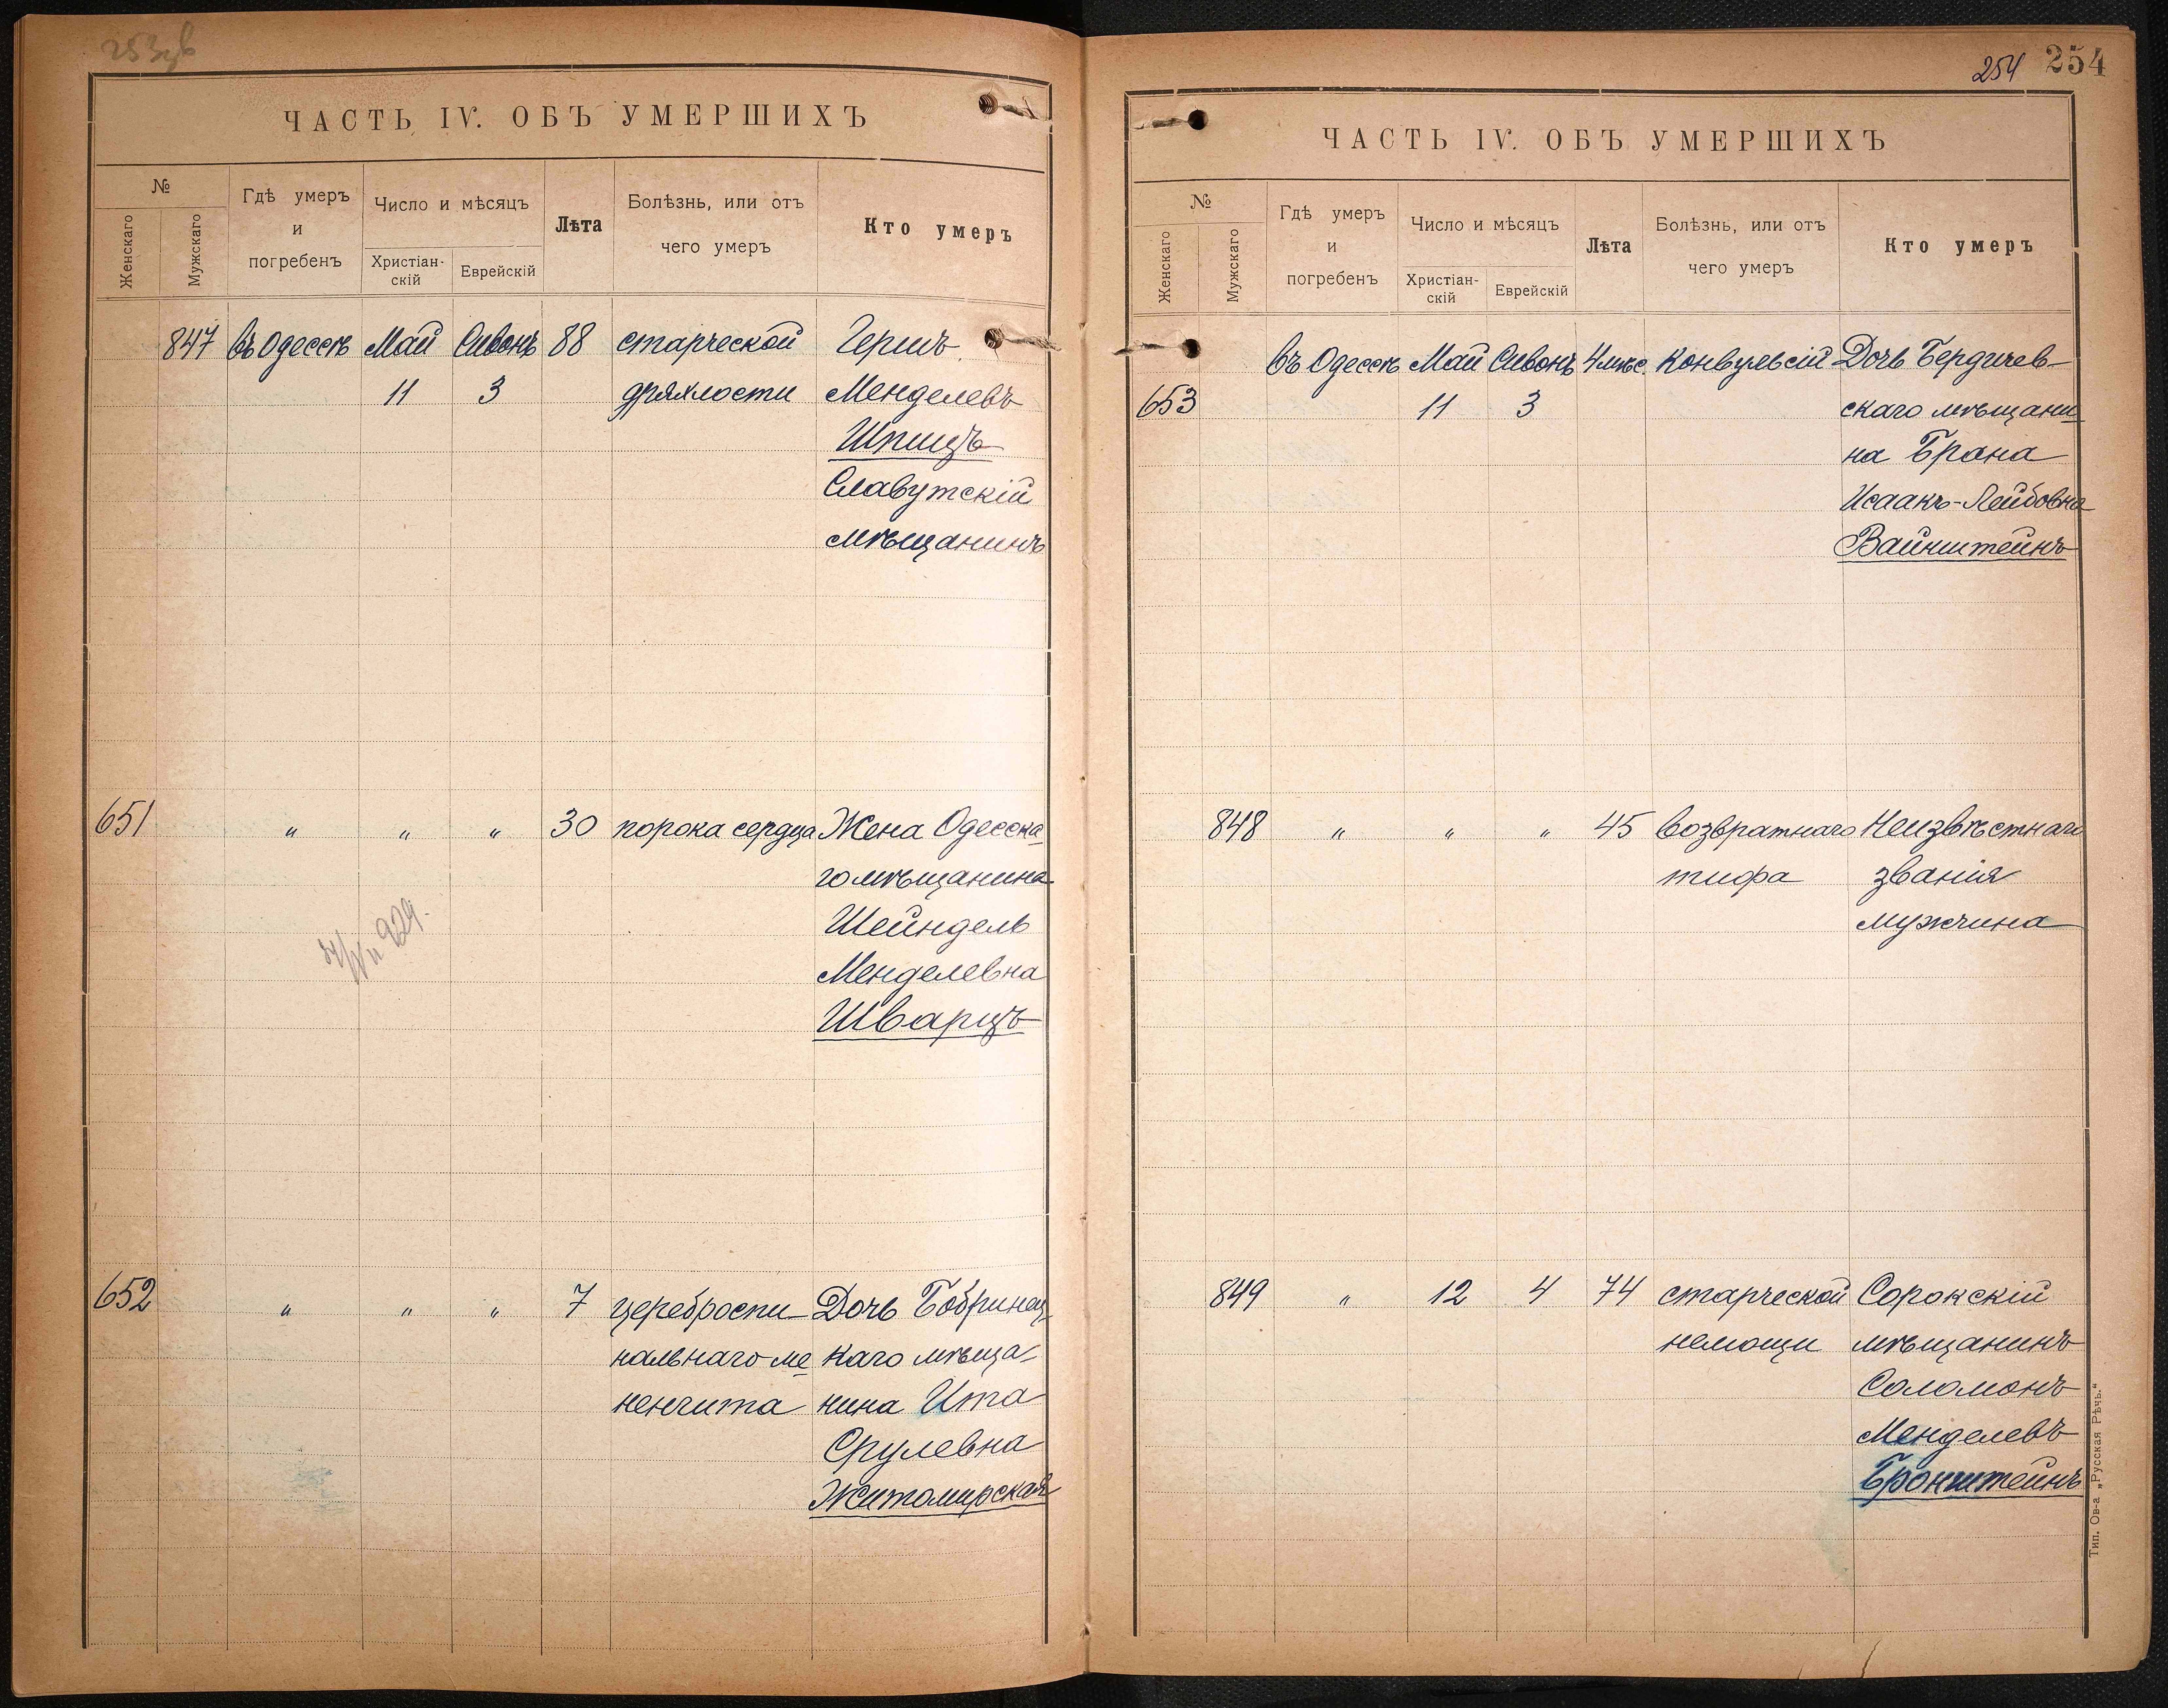 ЧАСТЬ IV. ОБЪ УМЕРШИХЪ
№
Женскаго
Мужскаго
Гдѣ умеръ
и
погребенъ
Число и мѣсяцъ
Христіан-
скій
Еврейскій
Лѣта
Болѣзнь, или отъ
чего умеръ
Кто умеръ
847 въ Одессѣ Май Сивонъ 88 старческой Гершъ
11 3 дряхлости Менделевъ
Шпицъ
Славутскій
мѣщанинъ
651 " " " 30 порока сердца Жена Одесска
го мѣщанина
Шейндель
Менделевна
Шварцъ
652 " " " 7 цереброспи Дочь Бобринец
нальнаго ме каго мѣща-
ненгита нина Ита
Срулевна
Житомирская
254 254
ЧАСТЬ IV. ОБЪ УМЕРШИХЪ
№
Женскаго
Мужскаго
Гдѣ умеръ
и
погребенъ
Число и мѣсяцъ
Христіан-
скій
Еврейскій
Лѣта
Болѣзнь, или отъ
чего умеръ
Кто умеръ
въ Одессѣ Май Сивонъ 4 мѣс. Конвульсій Дочь Бердичев-
653 11 3 скаго мѣщани
на Брана
Исаакъ-Лейбовна
Вайнштейнъ
848 " " " 45 возвратнаго Неизвѣстнаго
тифа званія
мужчина
849 " 12 4 74 старческой Сорокскій
немощи мѣщанинъ
Соломонъ
Менделевъ
Бронштейнъ
Тип. Ов-а „Русская Рѣчь.“